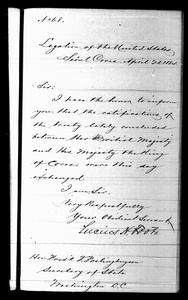 No. 68.
Legation of the United States
Seoul Corea April 28 1884
Sir:
I have the honor to inform
you that the ratifications of
the treaty lately concluded
between Her British Majesty
and His Majesty the King
of Corea were this day
exchanged.
I am Sir,
Very Respectfully
Your Obedient Servant
Lucius H. Foote
Hon. Fredk T. Frelinghuysen
Secretary of State
Washington D.C.